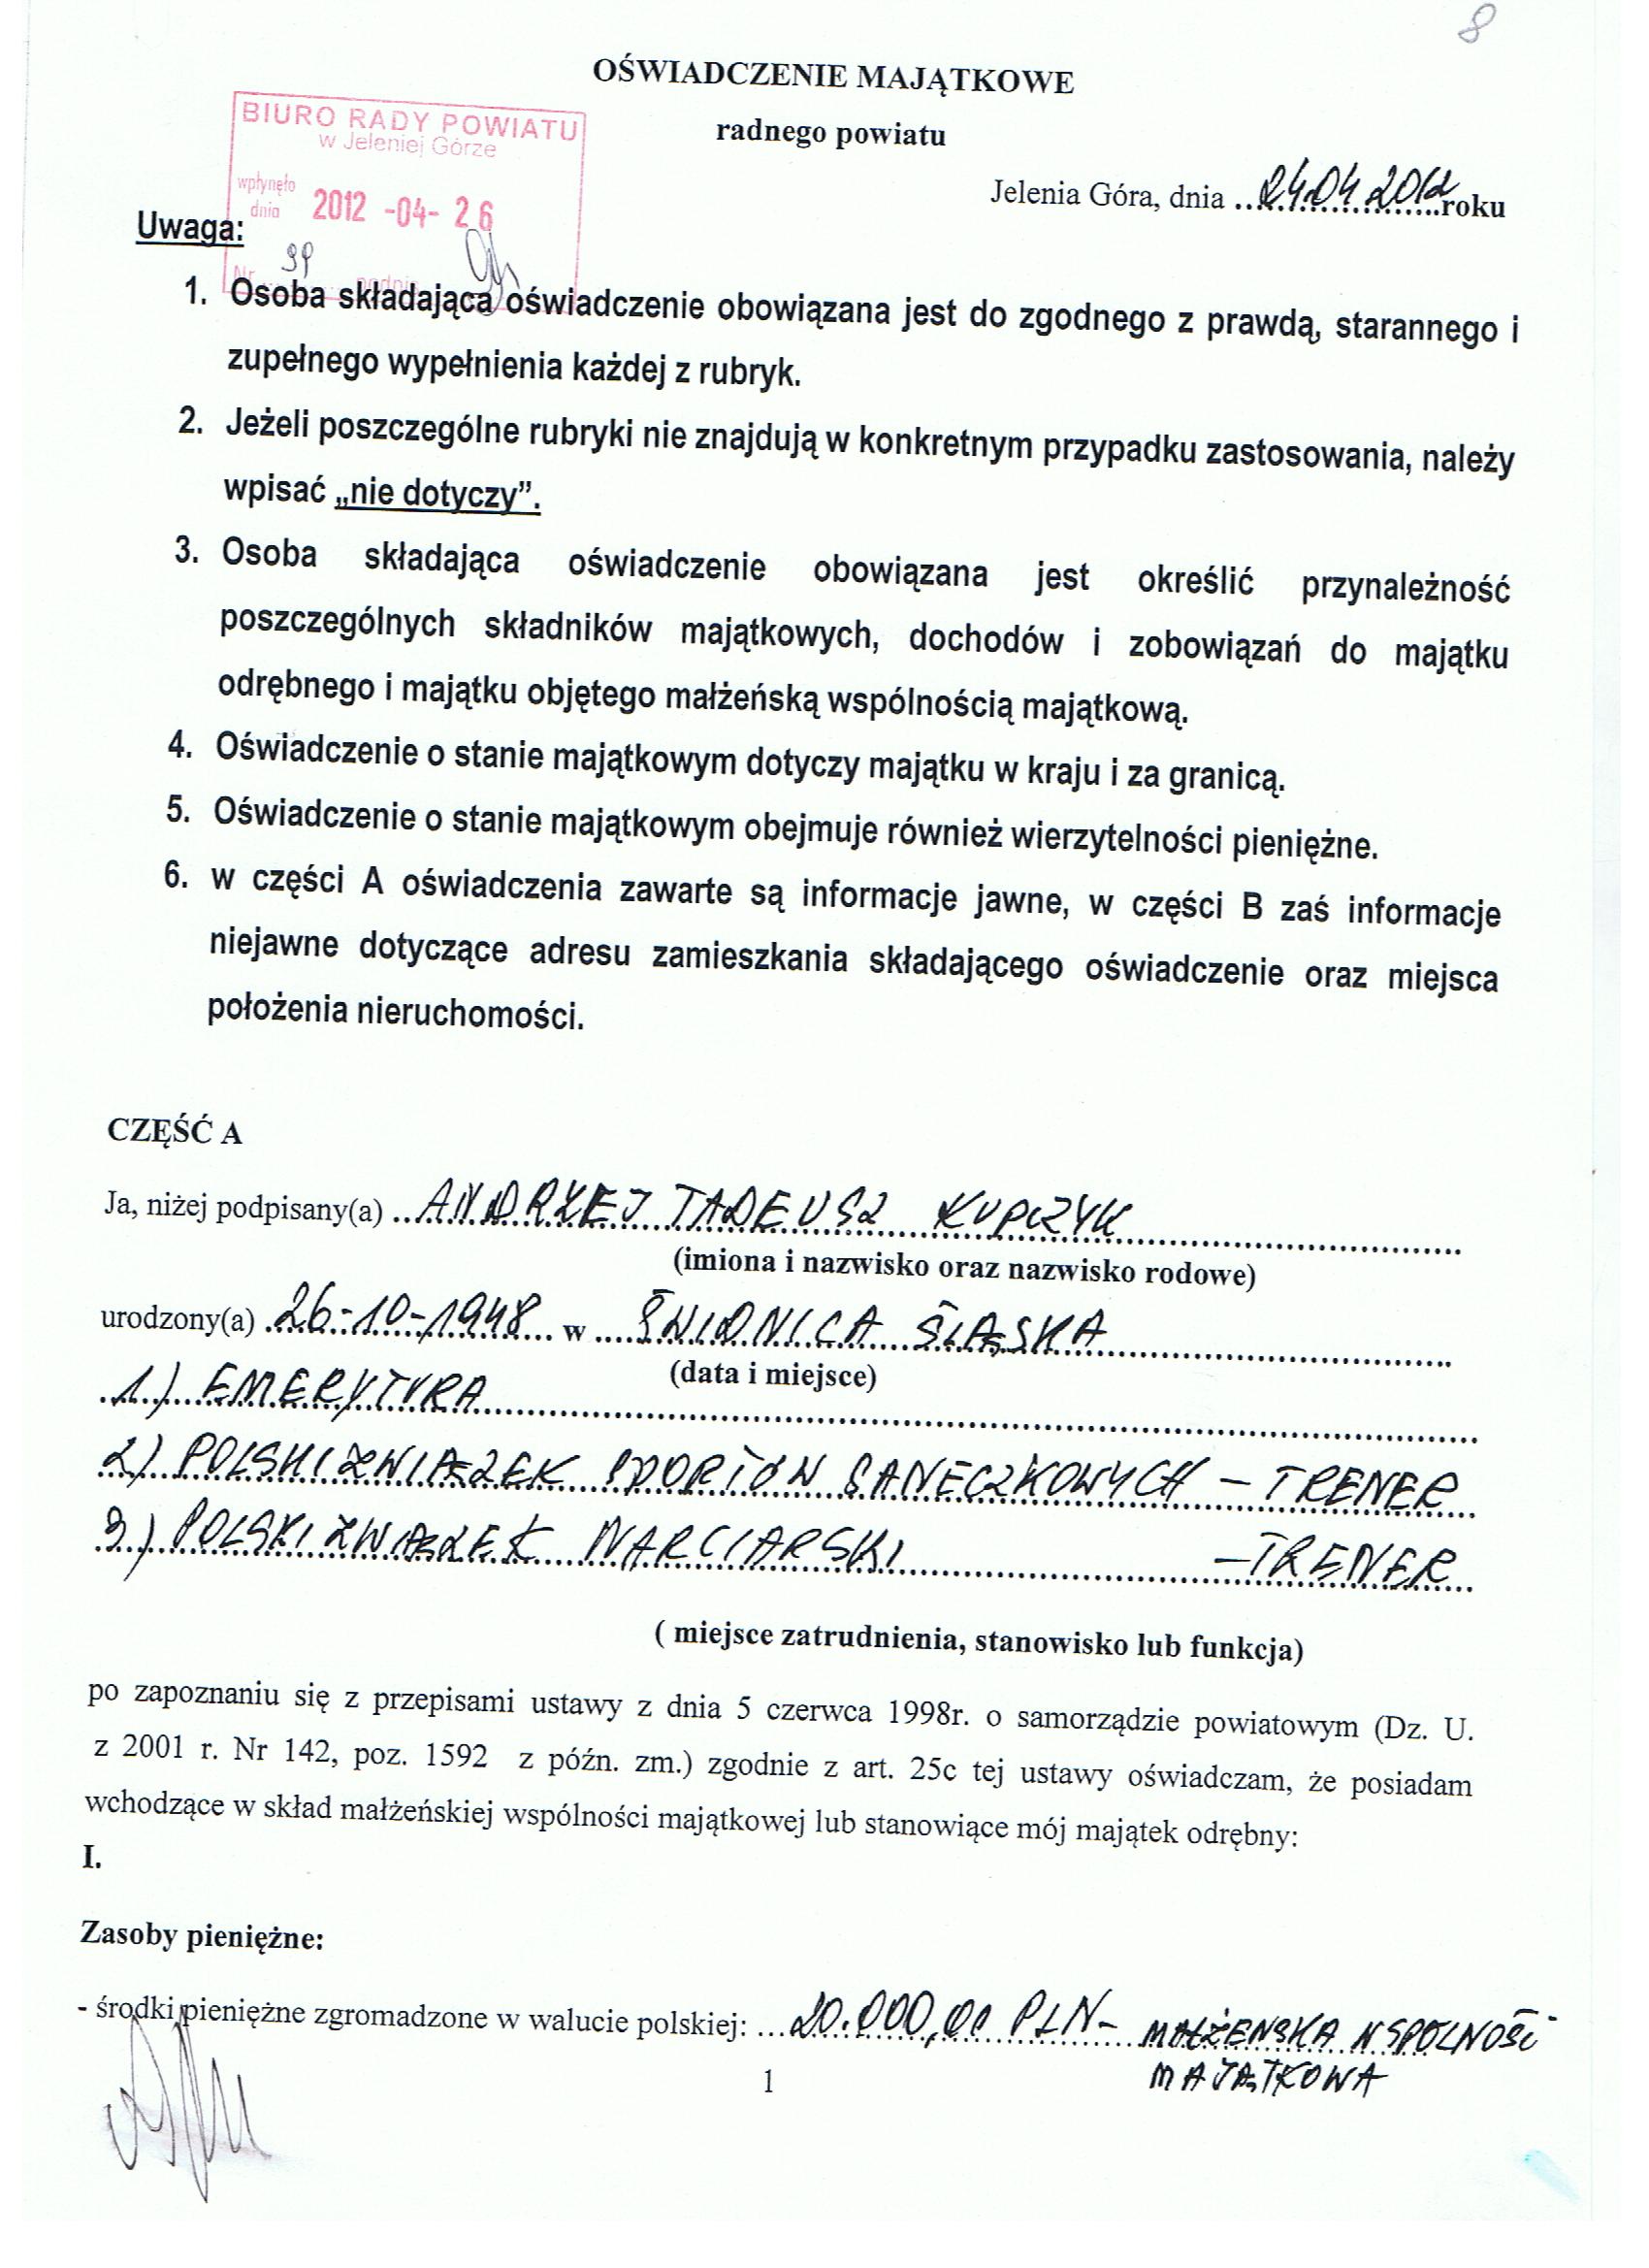 8
OŚWIADCZENIE MAJĄTKOWE
radnego powiatu
BIURO RADY POWIATU
w Jeleniej Górze
wpłynęło
dnia 2012 -04- 26
Nr ........... podpis
Jelenia Góra, dnia ..24.04.2012..roku
Uwaga:
1. Osoba składająca oświadczenie obowiązana jest do zgodnego z prawdą, starannego i
zupełnego wypełnienia każdej z rubryk.
2. Jeżeli poszczególne rubryki nie znajdują w konkretnym przypadku zastosowania, należy
wpisać „nie dotyczy”.
3. Osoba składająca oświadczenie obowiązana jest określić przynależność
poszczególnych składników majątkowych, dochodów i zobowiązań do majątku
odrębnego i majątku objętego małżeńską wspólnością majątkową.
4. Oświadczenie o stanie majątkowym dotyczy majątku w kraju i za granicą.
5. Oświadczenie o stanie majątkowym obejmuje również wierzytelności pieniężne.
6. w części A oświadczenia zawarte są informacje jawne, w części B zaś informacje
niejawne dotyczące adresu zamieszkania składającego oświadczenie oraz miejsca
położenia nieruchomości.
CZĘŚĆ A
Ja, niżej podpisany(a) ..ANDRZEJ TADEUSZ KUPCZYK
(imiona i nazwisko oraz nazwisko rodowe)
urodzony(a) 26-10-1948 w ŚWIDNICA ŚLĄSKA
(data i miejsce)
1) EMERYTURA
2) POLSKI ZWIĄZEK SPORTÓW SANECZKOWYCH – TRENER
3) POLSKI ZWIĄZEK NARCIARSKI – TRENER
( miejsce zatrudnienia, stanowisko lub funkcja)
po zapoznaniu się z przepisami ustawy z dnia 5 czerwca 1998r. o samorządzie powiatowym (Dz. U.
z 2001 r. Nr 142, poz. 1592 z późn. zm.) zgodnie z art. 25c tej ustawy oświadczam, że posiadam
wchodzące w skład małżeńskiej wspólności majątkowej lub stanowiące mój majątek odrębny:
I.
Zasoby pieniężne:
- środki pieniężne zgromadzone w walucie polskiej: ...20.000,00 PLN – MAŁŻEŃSKA WSPÓLNOŚĆ
MAJĄTKOWA
1